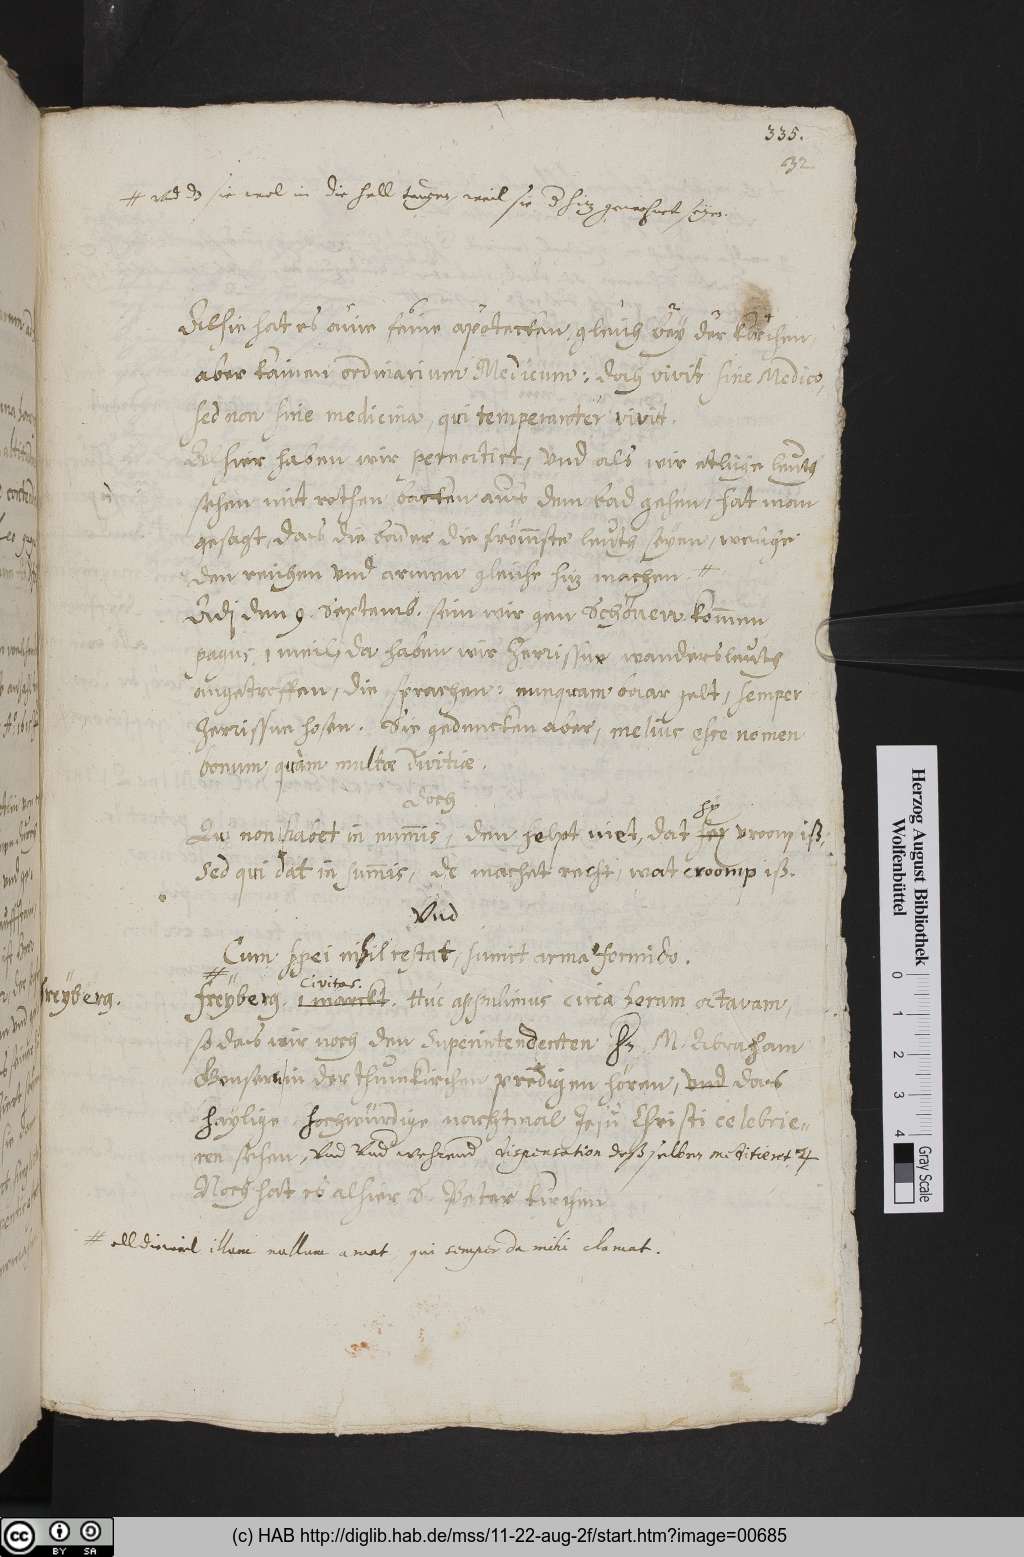 335.
32
# und dz sie wol in die hell taugen, weil sie d hitz gewohnet seyen.
Alhie hat es auine feine apotecken, gleich bey der kirchen,
aber kainen ordinarium Medicum: doch vivit sine Medico,
sed non sine medicina, qui temperanter vivit.
Alhier haben wir pernoctirt, und als wir etliche leuth
sehen mit rothen backen aus dem bad gehen, hat man
gesagt, das die bader die frömste leuth seyen, welche
den reichen und armen gleiche hitz machen. #
Adj den 9. Septemb. sein wir gen Schönew komen
pagus, 1 meil, da haben wir zerrissne wandersleuth
angetroffen, die sprachen: nunquam baar gelt, semper
zerrissne hosen. Sie gedencken aber, melius esse nomen
bonum, quàm multæ divitiæ.
doch
Qui non habet in nummis, den helpt niet, dat hy vroomp iß,
Sed qui dat in summis, de machet recht, wat croomp iß.
Und
Cum spei nihil restat, sumit arma formido.
#
Freyberg. Freÿberg. 1 marckt. Civitas. Huc appulimus circa horam octavam,
so das wir noch den Superintendenten Hn M. Abraham
in der Thumkirchen predigen hören, und das
haylige hochwürdige nachtmal Jesu Christi celebrie-
ren sehen, Und Und wehrend dispensation deß selben meditieret.
Noch hat es alhier S. Peter kirchen
# alldieweil illum nullum amat, qui semper da mihi clamat.
Herzog August Bibliothek
Wolfenbüttel
0 1 2 3 4
Gray Scale
cc BY SA
(c) HAB http://diglib.hab.de/mss/11-22-aug-2f/start.htm?image=00685